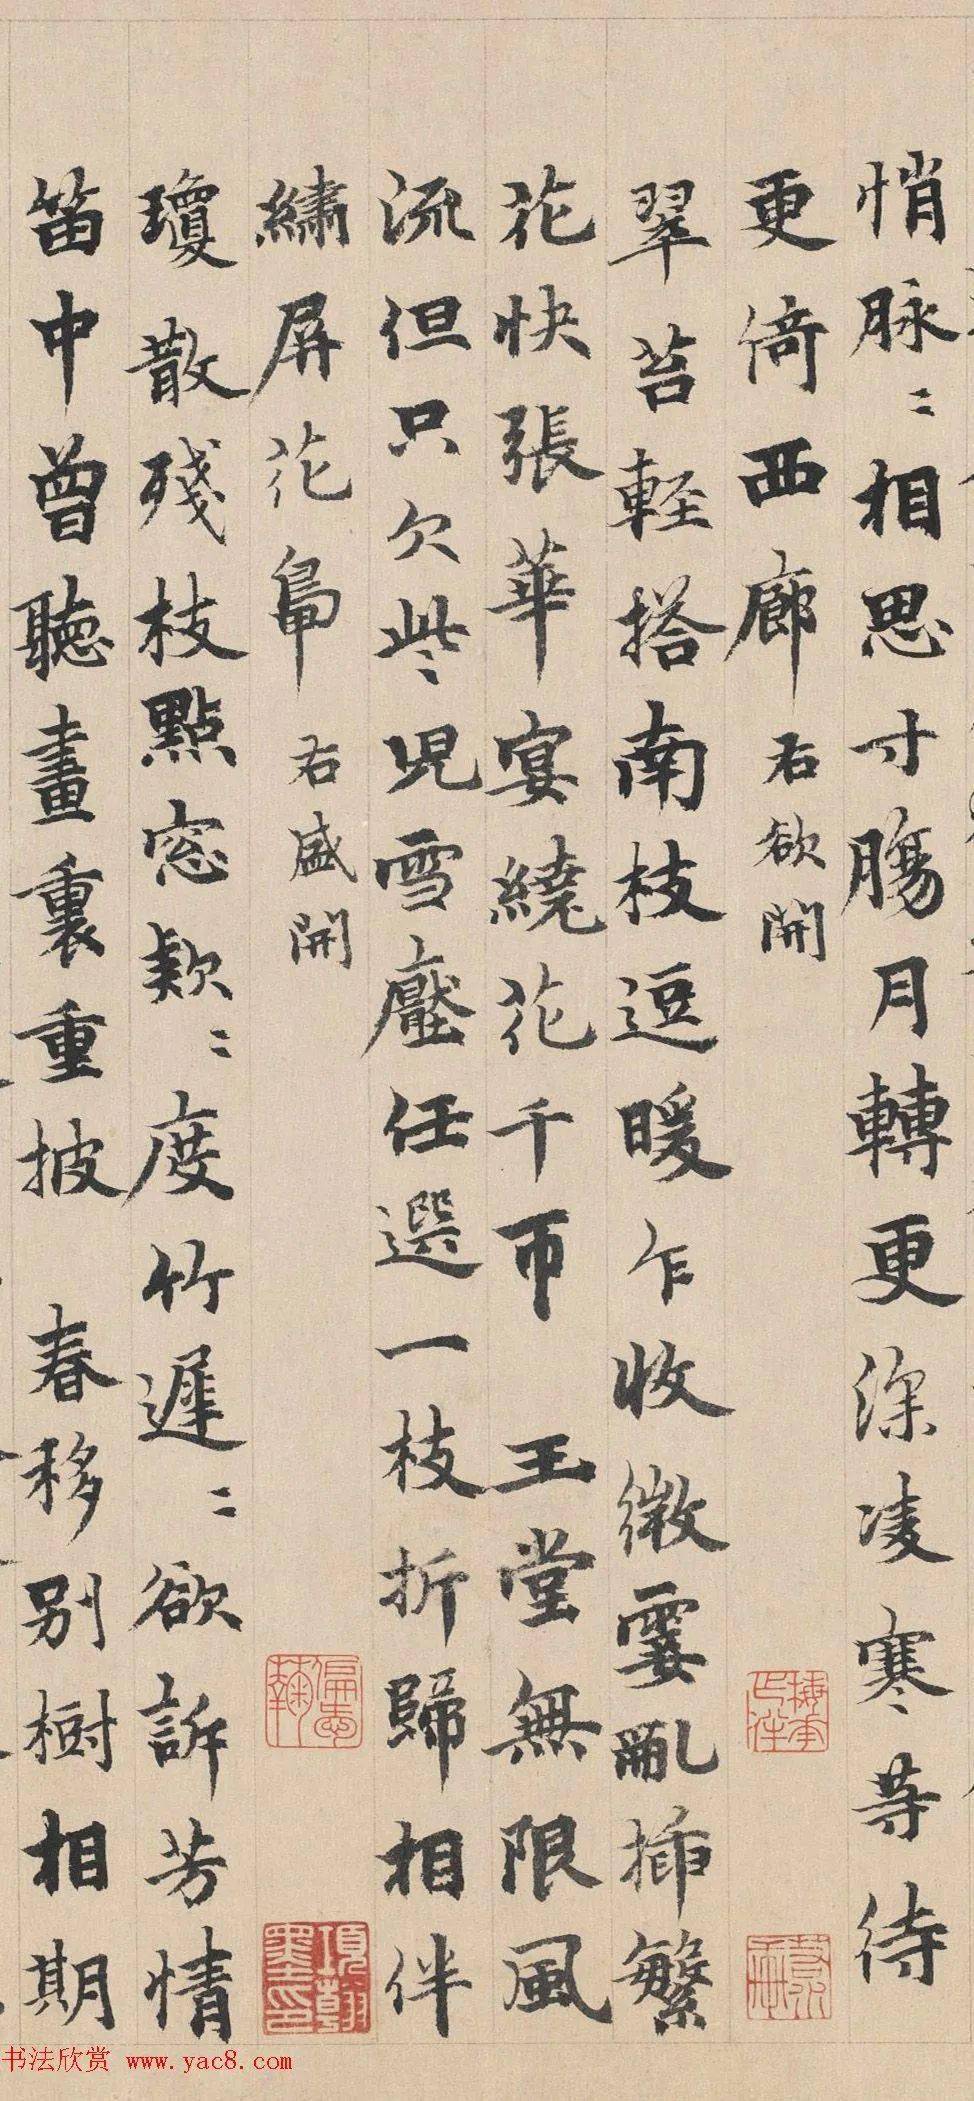 悄脉〻相思寸腸月轉更深凌寒等待
更倚西廊 右欲開
翠苔輕搭南枝逗暖乍收微霎亂插繁
花快張華宴繞花千帀 玉堂無限風
流但只欠些〻児雪壓任選一枝折歸相伴
繡屏花鳬 右盛開
瓊散殘枝點窓欵〻度竹遲〻欲訴芳情
笛中曾聽畫裏重披 春移别樹相期
項叔子
墨林
书法欣赏 www.yac8.com